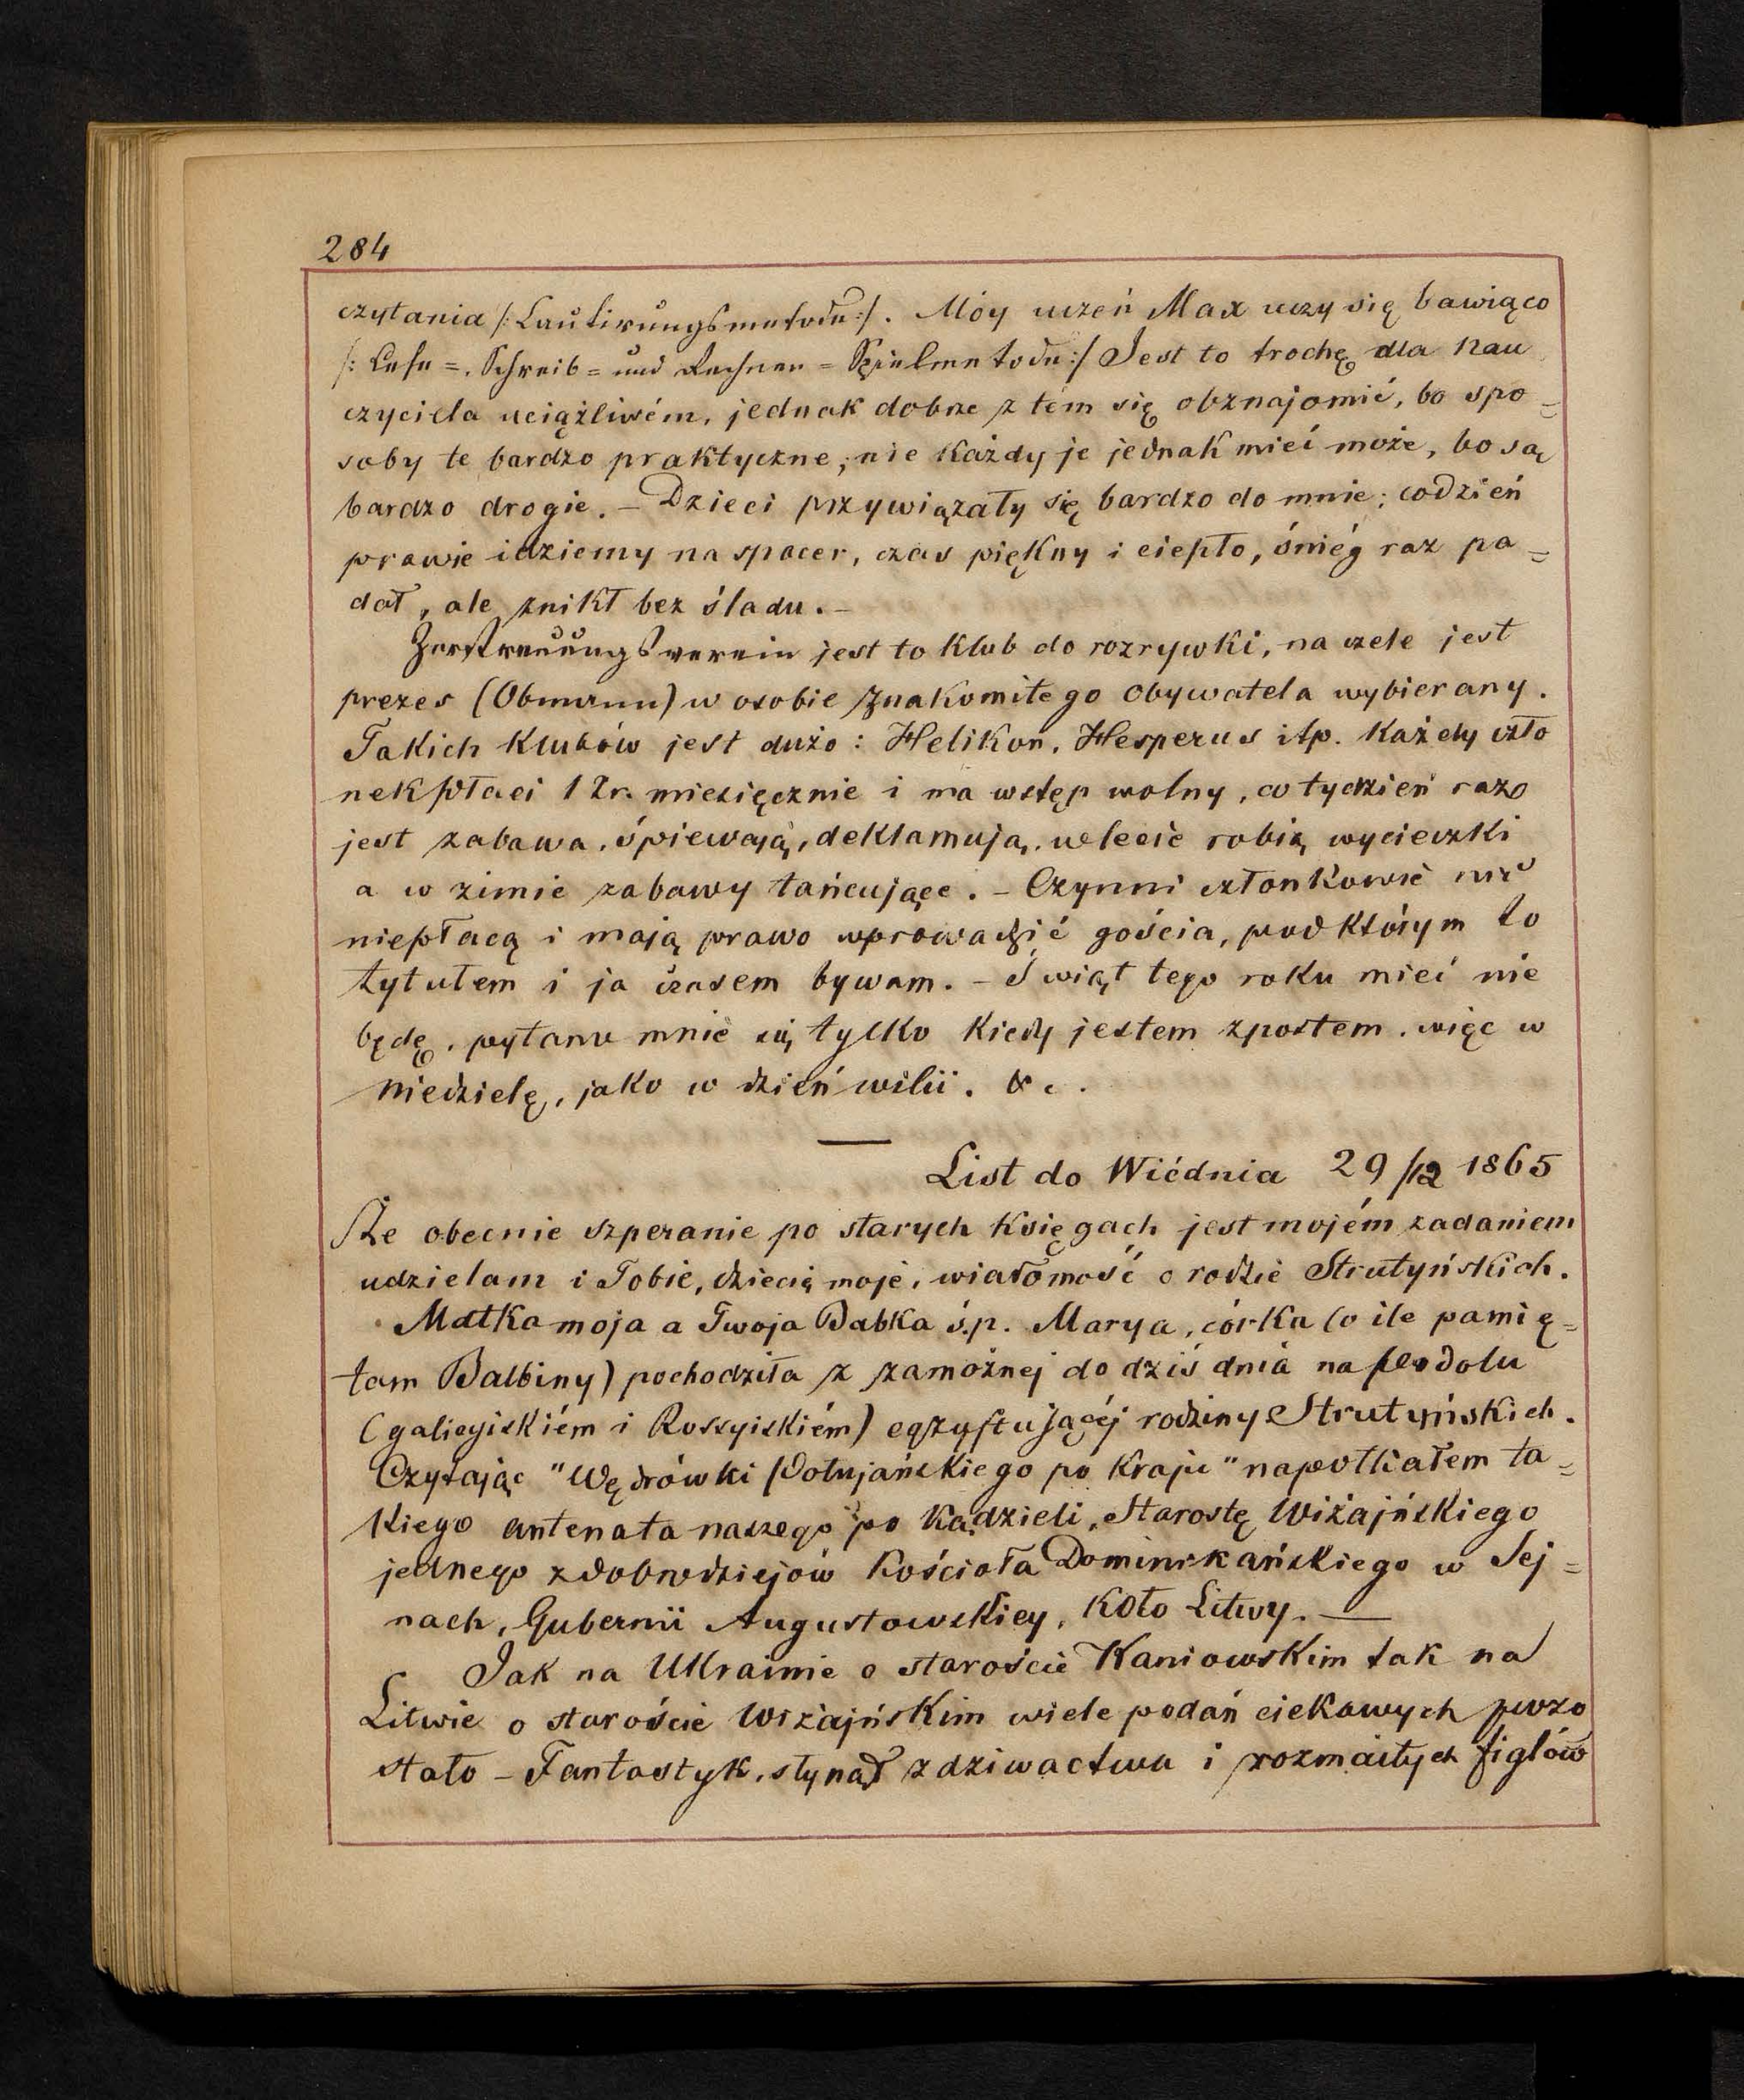 284
czytania /:Lautirungsmethode:/. Móy uczeń Max uczy się bawiąco
/: Lese=, Schreib= und Rechnen= Spielmethode:/ Jest to trochę dla nau
czyciela uciążliwém, jednak dobrze z tém się obznajomić, bo spo=
soby te bardzo praktyczne, nie każdy je jednak mieć może, bo są
bardzo drogie. – Dzieci przywiązały się bardzo do mnie; codzień
prawie idziemy na spacer, czas piękny i ciepło, śniég raz pa=
dał, ale znikł bez śladu. –
Zerstreuungsverein jest to klub do rozrywki, na czele jest
prezes (Obmann) w osobie znakomitego obywatela wybierany.
Takich klubów jest dużo: Helikon, Hesperus itp. Każdy czło
nek płaci 1 Zr. miesięcznie i ma wstęp wolny, co tydzień raz
jest zabawa, śpiewają, deklamują, w lecie robią wycieczki
a w zimie zabawy tańcujące. – Czynni członkowie nic
niepłacą i mają prawo wprowadzić gościa, pod którym to
tytułem i ja czasem bywam. – Świąt tego roku mieć nie
będę, pytano mnie się tylko kiedy jestem z postem, więc w
niedzielę, jako w dzień wilii. &c.
List do Wiédnia 29/12 1865
Że obecnie szperanie po starych księgach jest mojém zadaniem
udzielam i Tobie, dziecię moje, wiadomość o rodzie Strutyńskich.
Matka moja a Twoja Babka ś.p. Marya, córka (o ile pamię=
tam Balbiny) pochodziła z zamożnej do dziś dnia na Podolu
(galicyiskiém i Rossyiskiém) egzystującéj rodziny Strutyńskich.
Czytając "Wędrówki Połujańskiego po Kraju" napotkałem ta=
kiego antenata naszego po kądzieli, Starostę Wiżajńskiego
jednego z dobrodziejów Kościoła Dominikańskiego w Sej=
nach, Gubernii Augustowskiey, koło Litwy. —
Jak na Ukrainie o staroście Kaniowskim tak na
Litwie o staroście Wiżajńskim wiele podań ciekawych pozo
stało – Fantastyk, słynął z dziwactwa i rozmaitych figlów